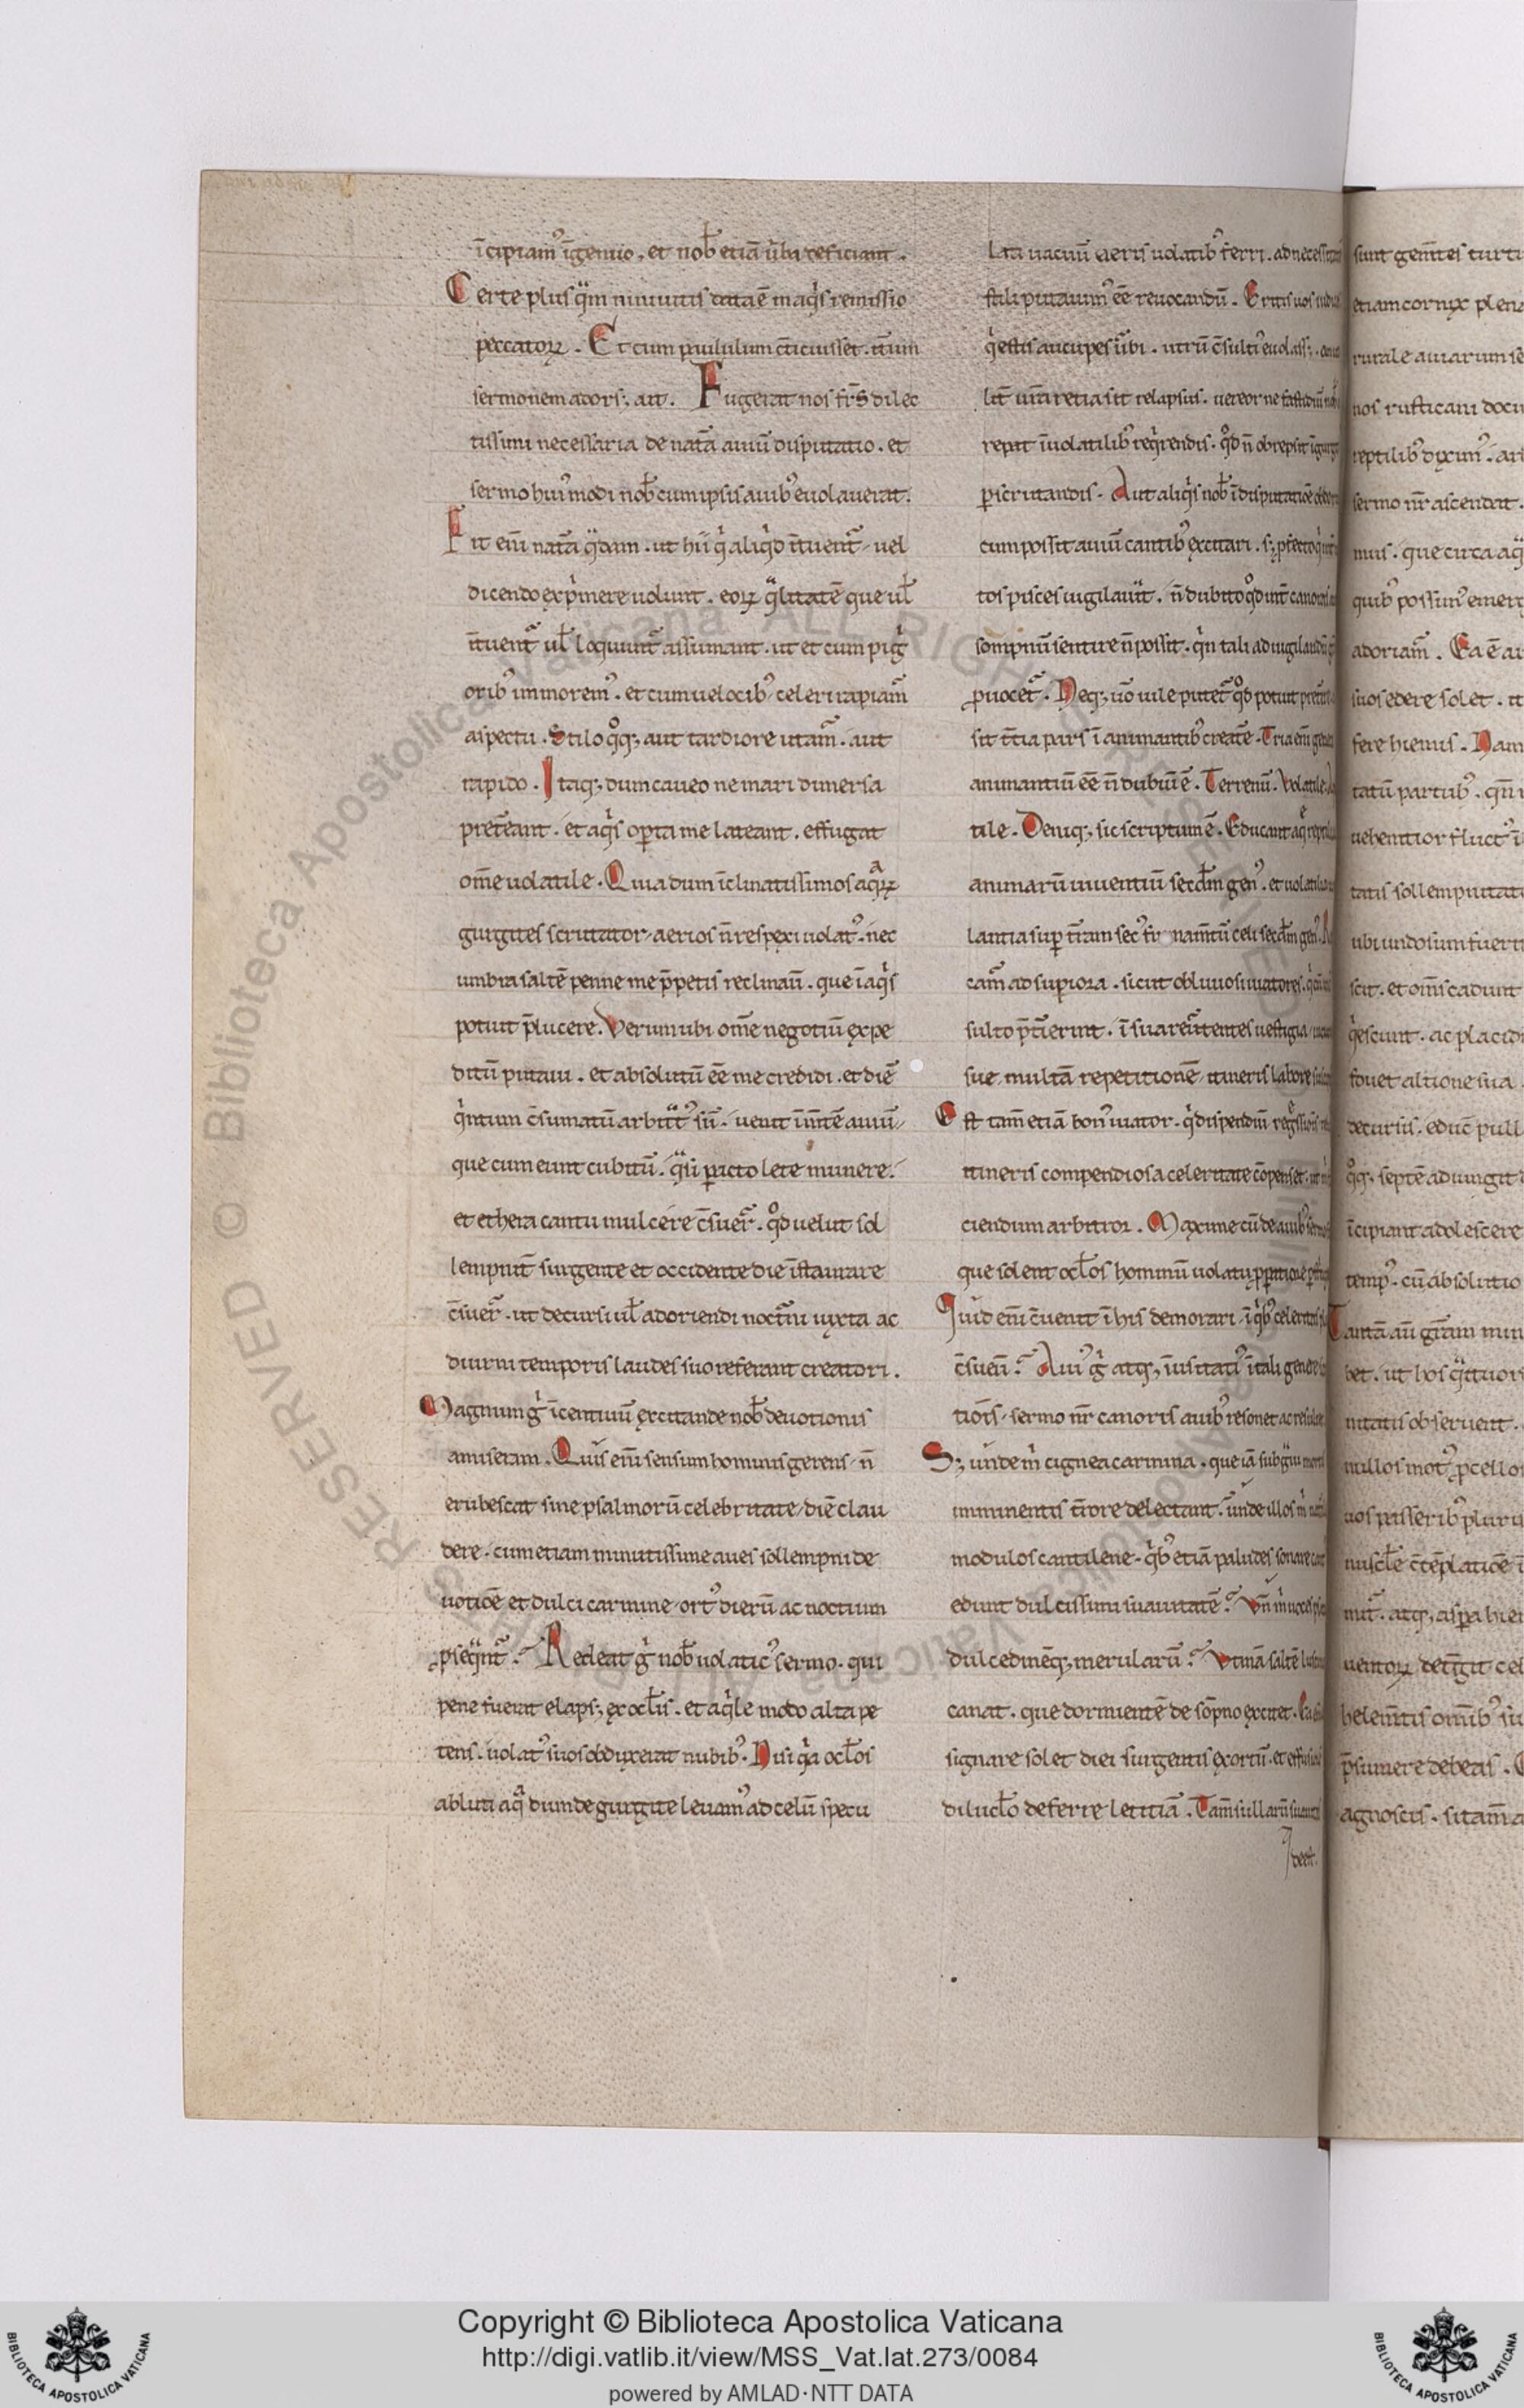 īcipiam᷒ īgenuo. et nob̄ etiā ūba deficiant.
Certe plusqͣm ninuitis data ē in aqͥs remissio
peccatoꝝ. Et cum paululum cōticuisset. itūm
sermonem adors᷒. ait. Fugerat nos fr̄s dilec
tissimi necessaria de nat̄a auiū disputatio. et
sermo hui᷒modi nob̄ cum ipsis auib᷒ euolauerat.
Fit eni nat̄a qͣdam. ut hii qͥ aliqͥd īntuent᷑. uel
dicendo expͥmere uolunt. eoꝝ qͣlitatē que ul̄
īntuent᷑ ul̄ loquunt᷑ assumant. ut et cum pigͥ
orib᷒ inmorem᷒. et cum uelocib᷒ celeri rapiam᷑
aspectu. Stilo qͦqꝫ aut tardiore utam᷑. aut
rapido. Itaqꝫ dum caueo ne mari dimersa
pretēant. et aqͥs opta me lateant. effugat
om̄e uolatile. Quia dum īclinatissimos aqͣꝝ
gurgites scrutator. aerios n̄ respexi uolat᷒. nec
umbra saltē penne me p̄petis reclinauit. que ī aqͥs
potuit p̄lucere. Verum ubi om̄e negotiū expe
ditū putaui. et absolutū eē me credidi. et diē
qͥntum cōsumatū arbitͣt᷒ sū. uenit ī mtē auiū
que cum eunt cubitū. qͣsi pacto lete munere.
et ethera cantu mulcere cōsuer᷑. qͦd uelut sol
lempnit̄ surgente et occidente die īstaurare
cōsuer᷑. ut decursi ul̄ adoriendi noct̄ni iuxta ac
diurni temporis laudes suo referant creatori.
Magnum gͥ īcentiuū excitande nob̄ deuotionis
amiseram. Quis eni sensum hominis gerens. n̄
erubescat sine psalmorū celebritate. diē clau
dere. cum etiam minutissime aues sollempni de
uotiōe et dulci carmine. ort᷒ dierū ac noctium
pseqͣnt᷑. Redeat gͥ nob̄ uolatic᷒ sermo. qui
pene fuerat elaps᷒ ex ocl̄is. et aqͥle modo alta pe
tens. uolat᷒ suos obduxerat nubib᷒. Nisi qͥa ocl̄os
abluti aqͣ dum de gurgite leuam᷒ ad celū specu
Lta uacuū aeris uolatib᷒ ferri. ad necessitatē
stili putauim᷒ eē reuocandū. Eritis uos
qͥ estis aucupes ūbi. utrū cōsulti᷒ euolass᷒
lit̄ ur̄a retia sit relapsus. uereor ne fastidiū
repat ī uolatilib᷒ reqͥrendis. qͦd n̄ obrepsit
pscrutandis. Aut aliqͥs nob̄ ī disputatiōe
cum possit auiū cantib᷒ excitari. sꝫ pfecto
tos pisces uigilauit. n̄ dubito qͦd int̄ canoras
sompnū sentire n̄ possit. qͥn tali ad uigilandū
puocet᷑. Neqꝫ uō uile putet᷑ qͦd potuit
sit t̄tia pars ī animantib᷒ create. Tria eni genera
animantiū eē n̄ dubiū ē. Terrenū. Volatile.
tile. Deniqꝫ sic scriptum ē. Educant aqͣe reptilia
animarū uiuentiū secd̄m gen᷒. et uolatilia
lantia sup t̄ram sec᷒ firnam̄tū celi secd̄m gen᷒.
cam᷑ ad supiora. sicut obliuiosi uiatores.
sulto pt̄ierint. ī sua reūtentes uestigia
sue. multā repetitionē. itineris labore
Est tam̄ etiā bon᷒ uiator. qͥ dispendiū regͥssionis
itineris compendiosa celeritate cōpenset.
ciendum arbitror. Maxime cū de auib᷒
que solent ocl̄os hominū uolatu
Quid eni cōuenit ī his demorari. ī qͥb᷒ celeritas
cōsueui. Aui᷒ gͥ atqꝫ īusitati᷒ ī tali genere
tiōis. sermo nr̄ canoris auib᷒ resonet ac resultet.
Sꝫ unde mͥ cignea carmina. que iā sub gͣui morte
imminentis t̄rore delectant. unde illos mͥ
modulos cantilene. qͥb᷒ etiā paludes sonare
edunt dulcissimi suauitatē. Vn̄ mͥ uoces
dulcedinēqꝫ merularū. Vtinā saltē luscinia
canat. que dormientē de sōpno excitet.
signare solet diei surgentis exortū. et effusiorē
dilucl̄o deferre letitiā. Tam̄ si illarū suauitas
deest.
sunt gem̄tes turtu
etiam cornix plena
rurale auiarum se
nos rusticani docu
reptilib᷒ dixim᷒. ar
sermo nr̄ ascendat.
mus. que circa aqͣ
quib᷒ possim᷒ emerg
adoriam᷑. Ea ē au
suos edere solet. it
fere hiemis. Nam
tatū partub᷒. qn̄
uehemtior fluct᷒ ī
tatis sollempnitati
ubi undosum fuerit
scit. et om̄s cadunt
qͥescunt. ac placid
fouet altione sua
decursis. educ̄ pull
qͦqꝫ septē adiungit
īcipiant adolescere
temp᷒. cū absolutio
Tantā aū gr̄am min
bet. ut hos qͣttuor
nitatis obseruent.
nullos mot᷒ pcellos
uos passerib᷒ pluri
nuscl̄e cōtēplatiōe
mit᷑. atqꝫ aspa hie
uentoꝝ det̄git cel
helem̄tis om̄ib᷒ su
p̄sumere debeas.
agnoscis. si tam̄ a
Copyright © Biblioteca Apostolica Vaticana
http://digi.vatlib.it/view/MSS_Vat.lat.273/0084
powered by AMLAD·NTT DATA
BIBLIOTECA APOSTOLICA VATICANA
BIBLIOTECA APOSTOLICA VATICANA